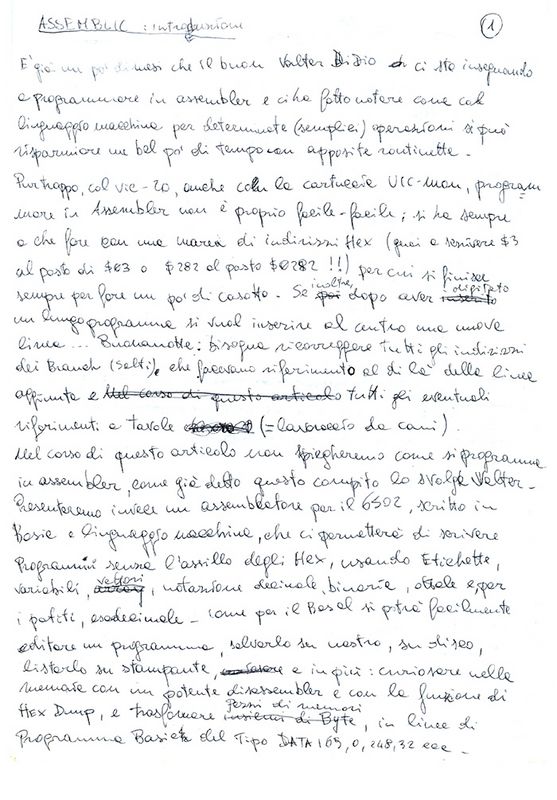 ASSEMBLIC : introduzione 1
E' già un po' di mesi che il buon Valter DiDio ci sta insegnando
a programmare in assembler e ci ha fatto notare come col
linguaggio macchina per determinate (semplici) operazioni si può
risparmiare un bel po' di tempo con apposite routinette.
Purtroppo, col vic-20, anche con la cartuccia VIC-Mon, program
mare in Assembler non è proprio facile-facile; si ha sempre
a che fare con una marea di indirizzi Hex (guai a scrivere $3
al posto di $03 o $282 al posto $0282 !!) per cui si finisce
sempre per fare un po' di casotto. Se inoltre, dopo aver digitato
un lungo programma si vuol inserire al centro una nuova
linea... Buonanotte: bisogna ricorreggere tutti gli indirizzi
dei Branch (salti), che facevano riferimento al di là della linea
aggiunta e Nel corso di questo articolo tutti gli eventuali
riferimenti a tavole (= lavoraccio da cani).
Nel corso di questo articolo non spiegheremo come si programma
in assembler, come già detto questo compito lo svolge Valter.
Presenteremo invece un assemblatore per il 6502, scritto in
Basic e linguaggio macchina, che ci permetterà di scrivere
Programmi senza l'assillo degli Hex, usando Etichette,
variabili, vettori, notazione decimale, binaria, ottale e per
i patiti, esadecimale. Come per il Basic si potrà facilmente
editare un programma, salvarlo su nastro, su disco,
listarlo su stampante, e in più: curiosare nella
memoria con un potente disassembler e con la funzione di
HEX Dump, e trasformare Pezzi di memoria insiemi di Byte, in linee di
Programma Basic del Tipo DATA 169, 0, 248, 32 ecc.